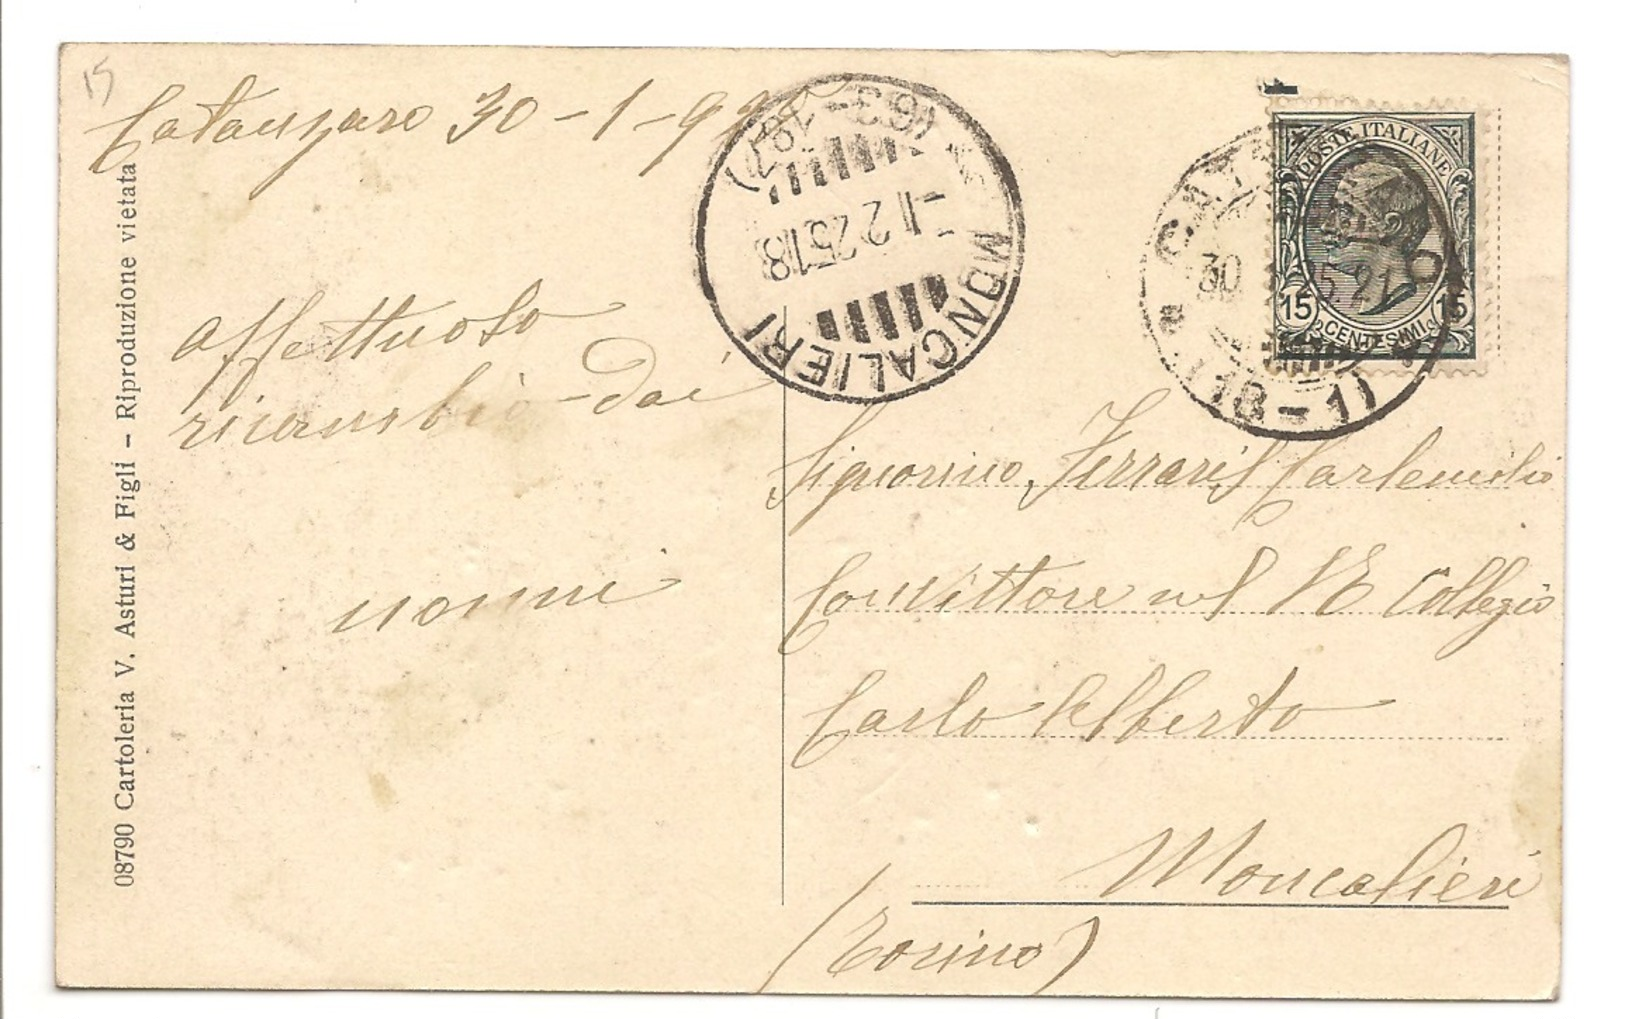 15
Catanzaro 30-1-925
affettuoso
ricambio dai
nonni
08790 Cartoleria V. Asturi & Figli – Riproduzione vietata
MONCALIERI
(63-187)
-1 2 25 18
POSTE ITALIANE
15 CENTESIMI 15
30 25.21
(18-1)
Signorino Ferraris Carlemilio
Convittore nel R Collegio
Carlo Alberto
Moncalieri
(Torino)